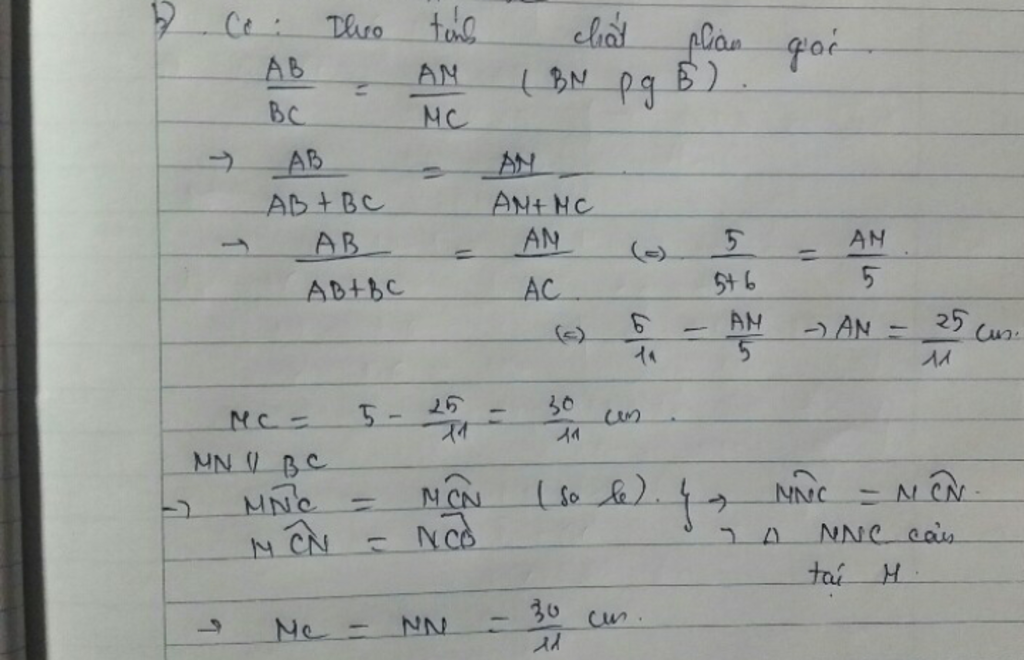 b) Có: Theo tính chất phân giác.
AB/BC = AM/MC (BM pg B̂).
→ AB/AB+BC = AM/AM+MC
→ AB/AB+BC = AM/AC (=) 5/5+6 = AM/5.
(=) 5/11 = AM/5 → AM = 25/11 cm.
MC = 5 - 25/11 = 30/11 cm.
MN // BC
→ MN̂C = MĈN (so le). } → MN̂C = MĈN.
MĈN = NĈB → Δ MNC cân
tại M.
→ MC = MN = 30/11 cm.